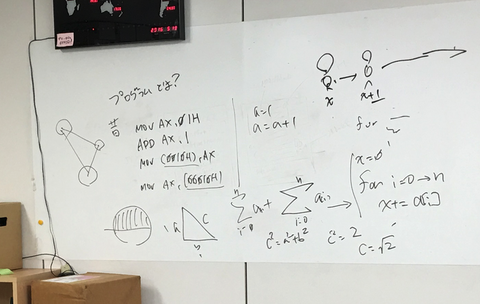 プログラムとは?
昔
MOV AX, 01H
ADD AX, 1
MOV (0010H), AX
MOV AX, (0010H)
a=1
a=a+1
x
x+1
for
x=0
for i=0→n
x+=a[i]
a
c
b
n
Σ
i=0
n
Σ
i=0
c²=a²+b²
c²=2
c=√2